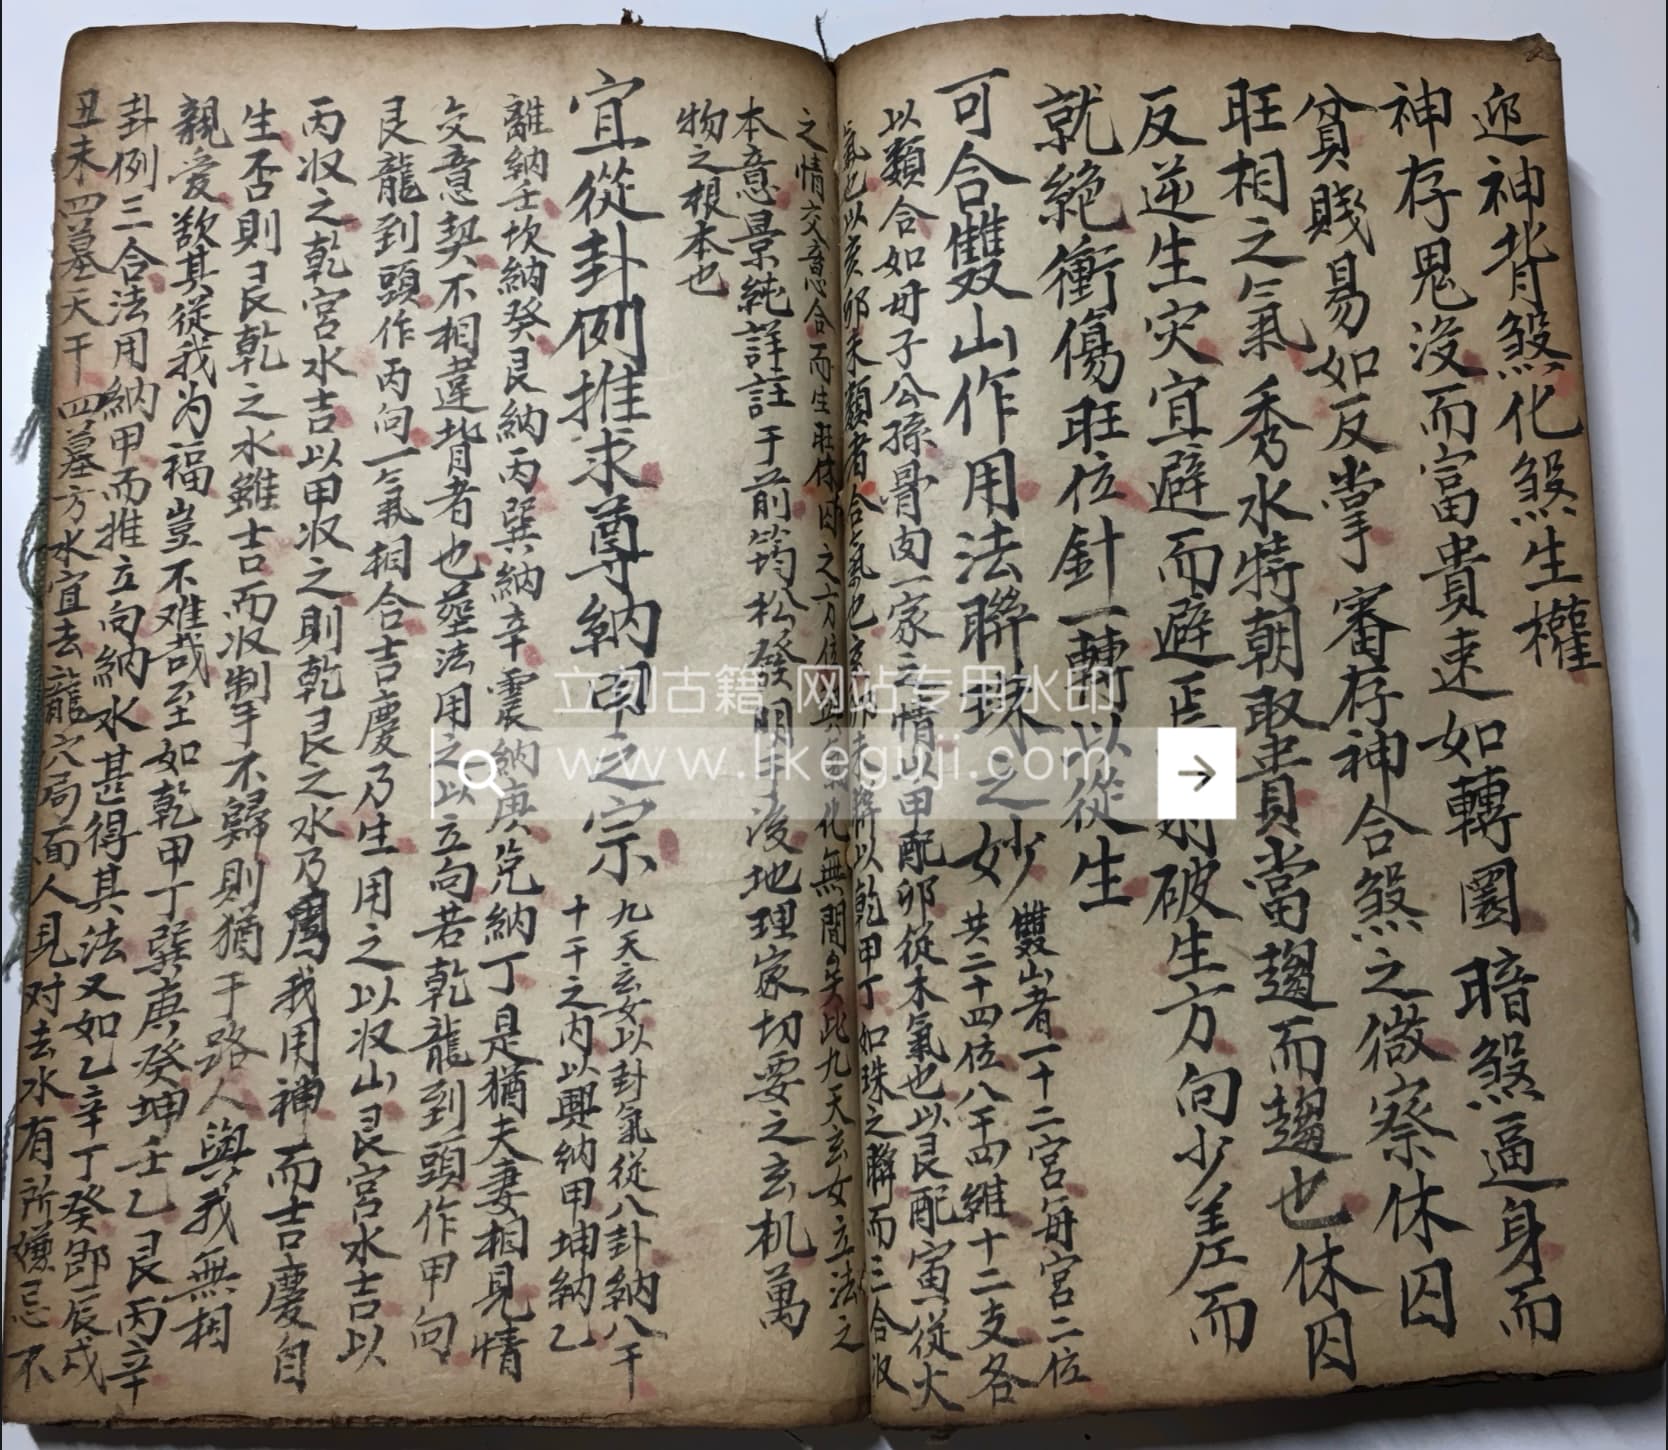 迎神背煞化煞生權
神存鬼沒而富貴速如轉圜暗煞逼身而
貧賤易如反掌審存神合煞之微察休囚
旺相之气秀水特朝取貴當趨而趨也休囚
反逆生灾宜避而避 破生方向少差而
就絶衝傷旺位針一轉以從生
可合雙山作用法聯珠之妙
雙山者一十二宮每宮二位
共二十四位八干四維十二支各
以類合如母子公孫骨肉一家之情以甲配卯從木氣也以艮配寅從火
氣也以亥卯未類者合氣也 以乾甲丁如珠之聯而三合収
之情交意合而生旺休囚之方位 化無間矣此九天玄女立法之
本意景純詳註于前筠松發明于後地理家切要之玄机萬
物之根本也
宜從卦例推求尊納甲之宗
九天玄女以卦氣從八卦納八干
十干之内以興納甲坤納乙
離納壬坎納癸艮納丙巽納辛震納庚兌納丁是猶夫妻相見情
交意契不相違背者也葬法用之以立向若乾龍到頭作甲向
艮龍到頭作丙向一氣相合吉慶乃生用之以収山艮宮水吉以
丙収之乾宮水吉以甲収之則乾艮之水乃爲我用神而吉慶自
生否則艮乾之水雖吉而収制手不歸則猶于路人與我無相
親愛欲其從我为福豈不难哉至如乾甲丁巽庚癸坤壬乙艮丙辛
卦例三合法用納甲而推立向納水甚得其法又如乙辛丁癸即辰戌
丑未四墓天干四墓方水宜去龍穴局面人見对去水有所嫌忌不
立刻古籍 网站专用水印
www.likeguji.com